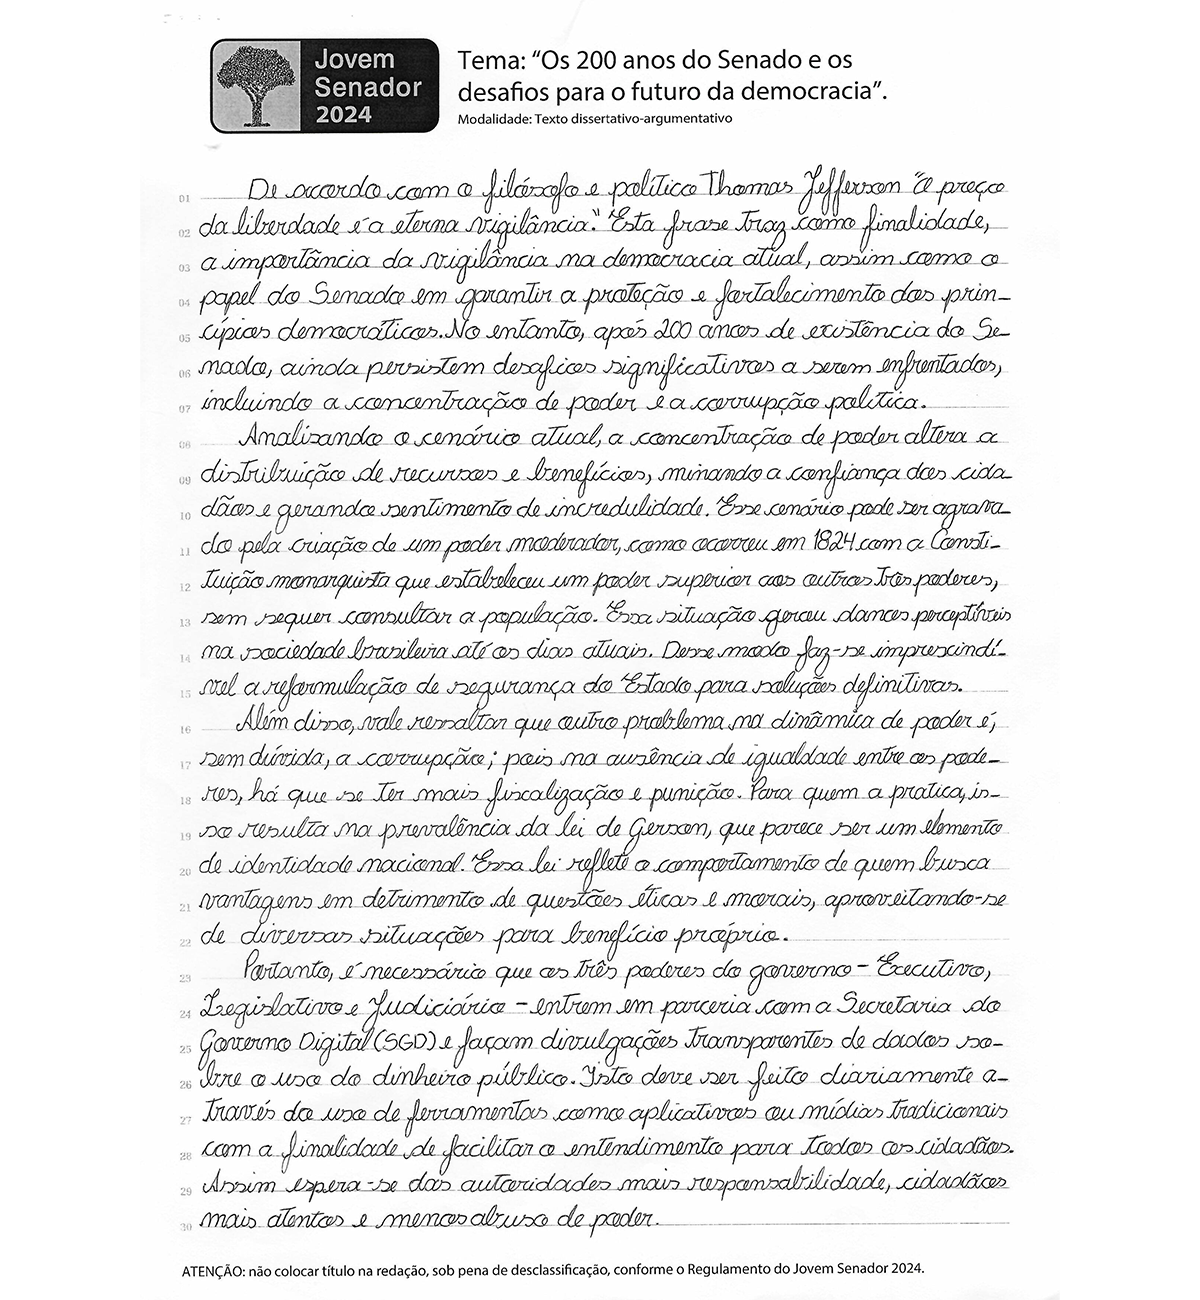 Jovem
Senador
2024
Tema: “Os 200 anos do Senado e os
desafios para o futuro da democracia”.
Modalidade: Texto dissertativo-argumentativo
01 De acordo com o filósofo e político Thomas Jefferson "O preço
02 da liberdade é a eterna vigilância". Esta frase traz como finalidade,
03 a importância da vigilância na democracia atual, assim como o
04 papel do Senado em garantir a proteção e fortalecimento dos prin-
05 cípios democráticos. No entanto, após 200 anos de existência do Se-
06 nado, ainda persistem desafios significativos a serem enfrentados,
07 incluindo a concentração de poder e a corrupção política.
08 Analisando o cenário atual, a concentração de poder altera a
09 distribuição de recursos e benefícios, minando a confiança dos cida-
10 dãos e gerando sentimento de incredulidade. Esse cenário pode ser agrava-
11 do pela criação de um poder moderador, como ocorreu em 1824 com a Consti-
12 tuição monarquista que estabeleceu um poder superior aos outros três poderes,
13 sem sequer consultar a população. Essa situação gerou danos perceptíveis
14 na sociedade brasileira até os dias atuais. Desse modo faz-se imprescindí-
15 vel a reformulação de segurança do Estado para soluções definitivas.
16 Além disso, vale ressaltar que outro problema na dinâmica de poder é,
17 sem dúvida, a corrupção; pois na ausência de igualdade entre os pode-
18 res, há que se ter mais fiscalização e punição. Para quem a pratica, is-
19 so resulta na prevalência da lei de Gerson, que parece ser um elemento
20 de identidade nacional. Essa lei reflete o comportamento de quem busca
21 vantagens em detrimento de questões éticas e morais, aproveitando-se
22 de diversas situações para benefício próprio.
23 Portanto, é necessário que os três poderes do governo - Executivo,
24 Legislativo e Judiciário - entrem em parceria com a Secretaria do
25 Governo Digital (SGD) e façam divulgações transparentes de dados so-
26 bre o uso do dinheiro público. Isto deve ser feito diariamente a-
27 través do uso de ferramentas como aplicativos ou mídias tradicionais
28 com a finalidade de facilitar o entendimento para todos os cidadãos.
29 Assim espera-se das autoridades mais responsabilidade, cidadãos
30 mais atentos e menos abuso de poder.
ATENÇÃO: não colocar título na redação, sob pena de desclassificação, conforme o Regulamento do Jovem Senador 2024.